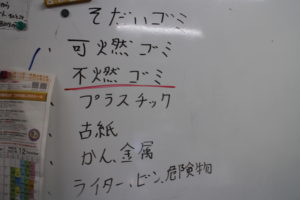 そだいゴミ
可燃ゴミ
不燃ゴミ
プラスチック
古紙
かん、金属
ライター、ビン、危険物